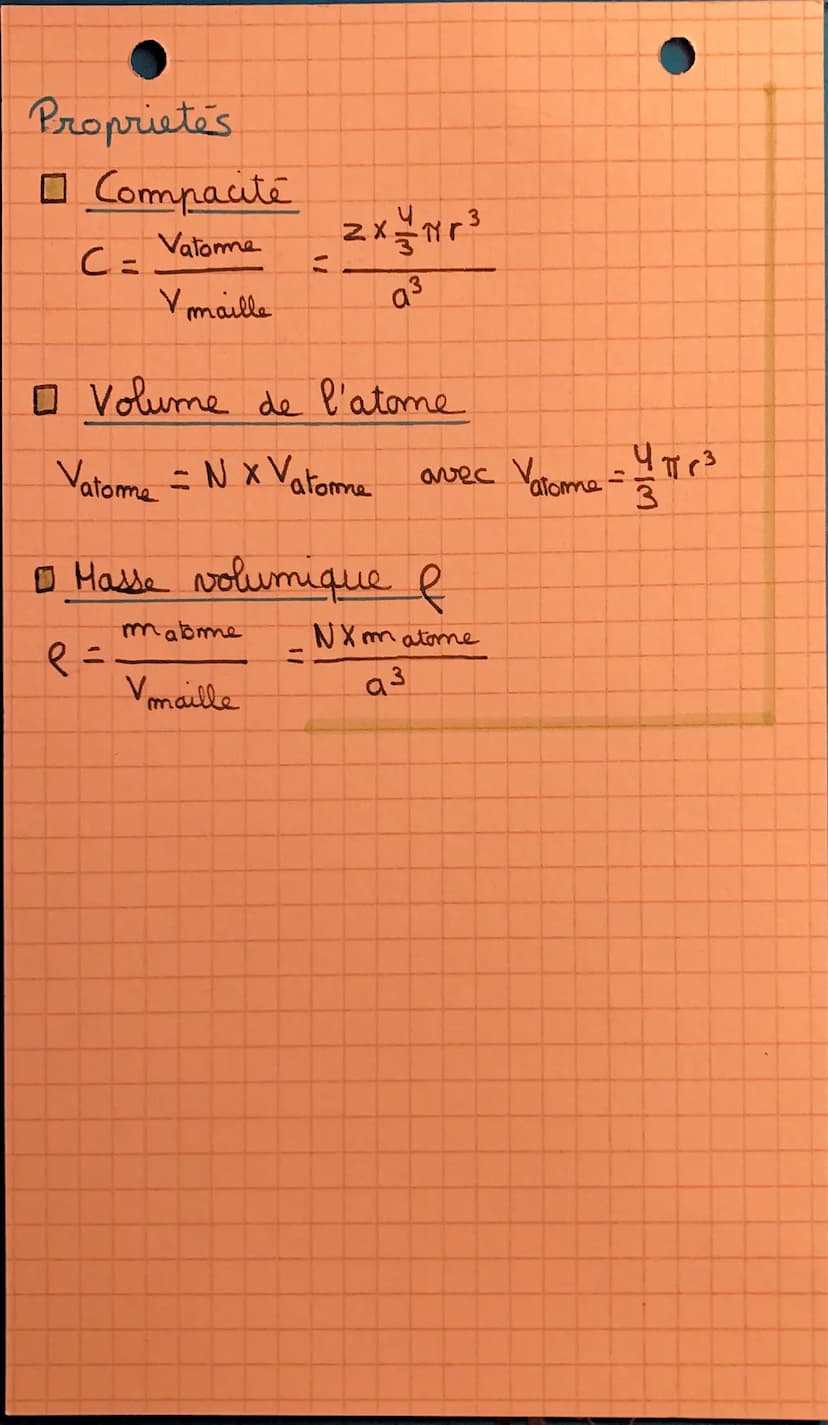 Proprietés
Compacité
C = Vatome / Vmaille = z × 4/3 π r³ / a³
Volume de l'atome
Vatome = N × Vatome avec Vatome = 4/3 π r³
Masse volumique ρ
ρ = matome / Vmaille = N × matome / a³